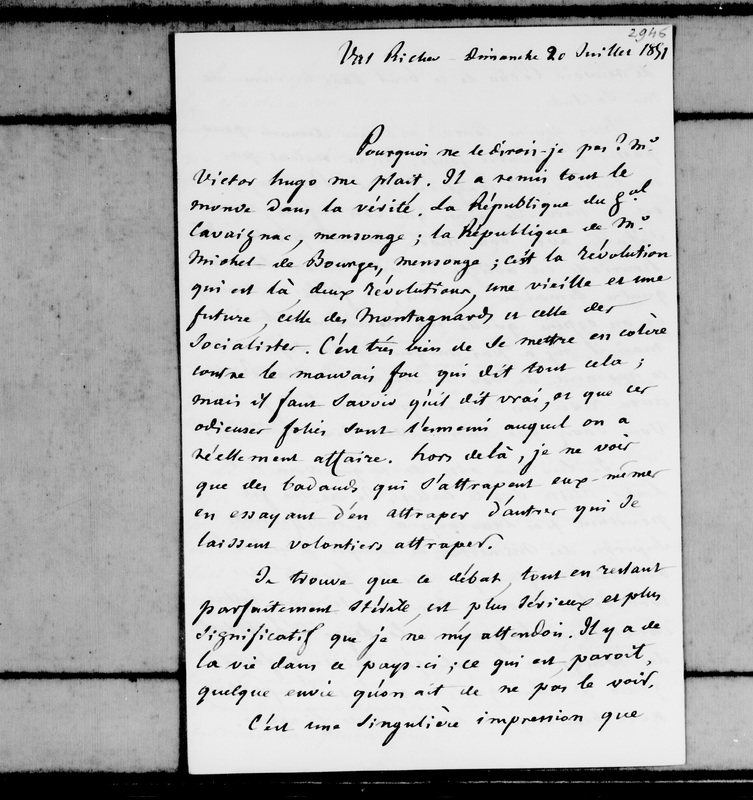 2946
Val Richer - Dimanche 20 Juillet 1851
Pourquoi ne le dirais-je pas ? Mr
Victor hugo me plait. Il a remis tout le
monde dans la vérité. La République du gal
Cavaignac, mensonge ; la République de Mr
Michel de Bourges, mensonge ; c'est la révolution
qui est là, deux révolutions, une vieille et une
future, celle des Montagnards et celle des
Socialistes. C'est très bien de se mettre en colère
contre le mauvais fou qui dit tout cela ;
mais il faut savoir qu'il dit vrai, et que ces
odieuses folies sont l'ennemi auquel on a
réellement affaire. hors delà, je ne vois
que des badauds qui s'attrapent eux-mêmes
en essayant d'en attraper d'autres qui se
laissent volontiers attraper.
Je trouve que ce débat, tout en restant
parfaitement stérile, est plus sérieux et plus
significatif que je ne m'y attendois. Il y a de
la vie dans ce pays-ci ; ce qui est paroit,
quelque envie qu'on ait de ne pas le voir.
C'est une singulière impression que